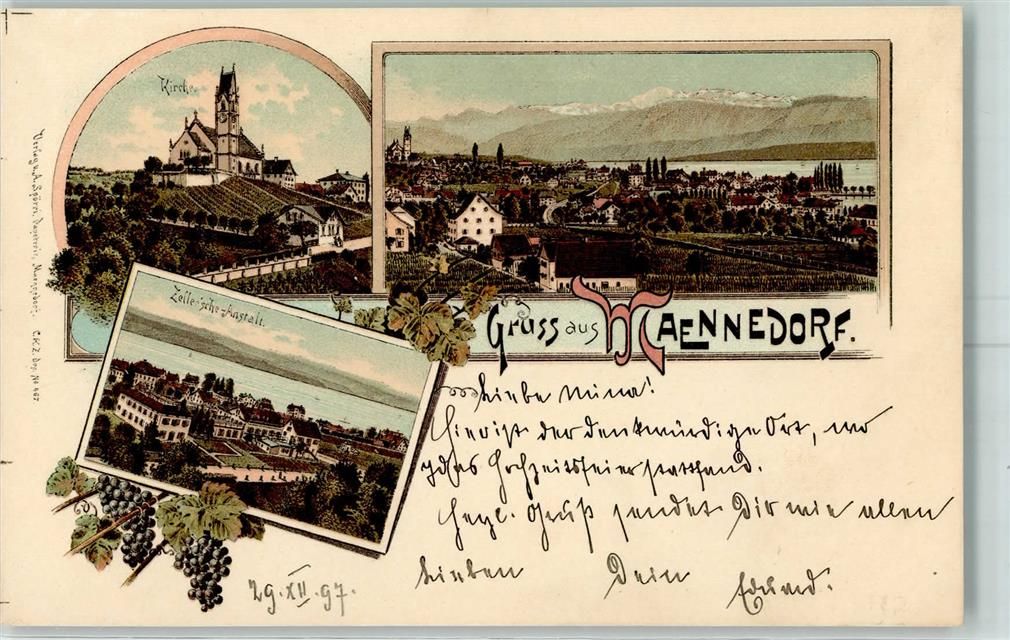 Kirche
Zeller'sche-Anstalt.
Gruss aus MAENNEDORF.
Liebe Mina!
Hier ist der denkwürdige Ort, wo
das Hochzeitsfeier stattfand.
Herzl. Gruß sendet Dir wie allen
Lieben Dein Eduard.
29.XII.97.
Verlag v. A. Spörri, Papeterie, Maennedorf. C.K.Z. Dep. No 467